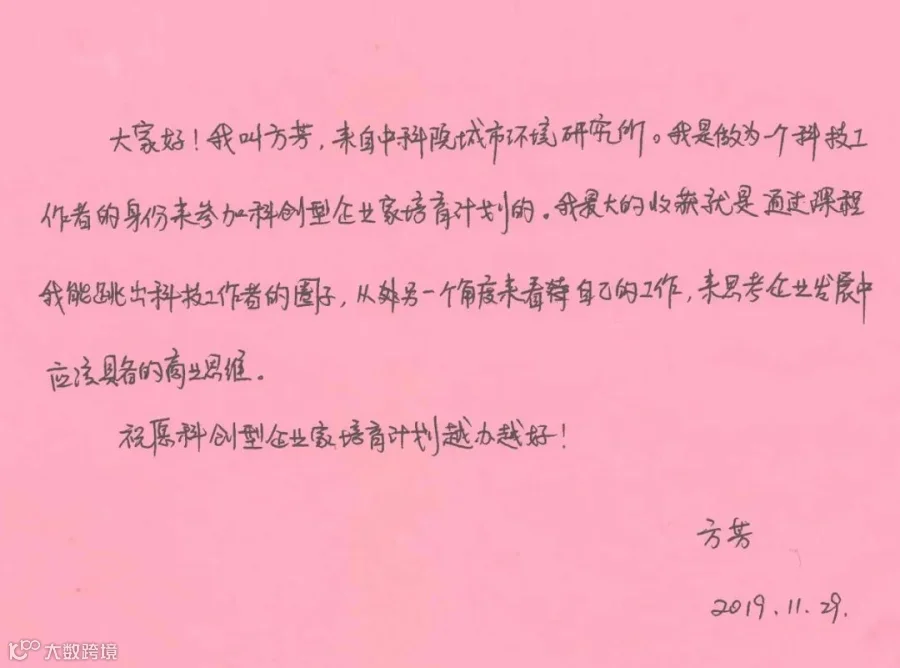 大家好！我叫方芳，来自中科院城市环境研究所。我是做为一个科技工
作者的身份来参加科创型企业家培育计划的。我最大的收获就是通过课程
我能跳出科技工作者的圈子，从外另一个角度来看待自己的工作，来思考企业发展中
应该具备的商业思维。
祝愿科创型企业家培育计划越办越好！
方芳
2019.11.29.
大数跨境